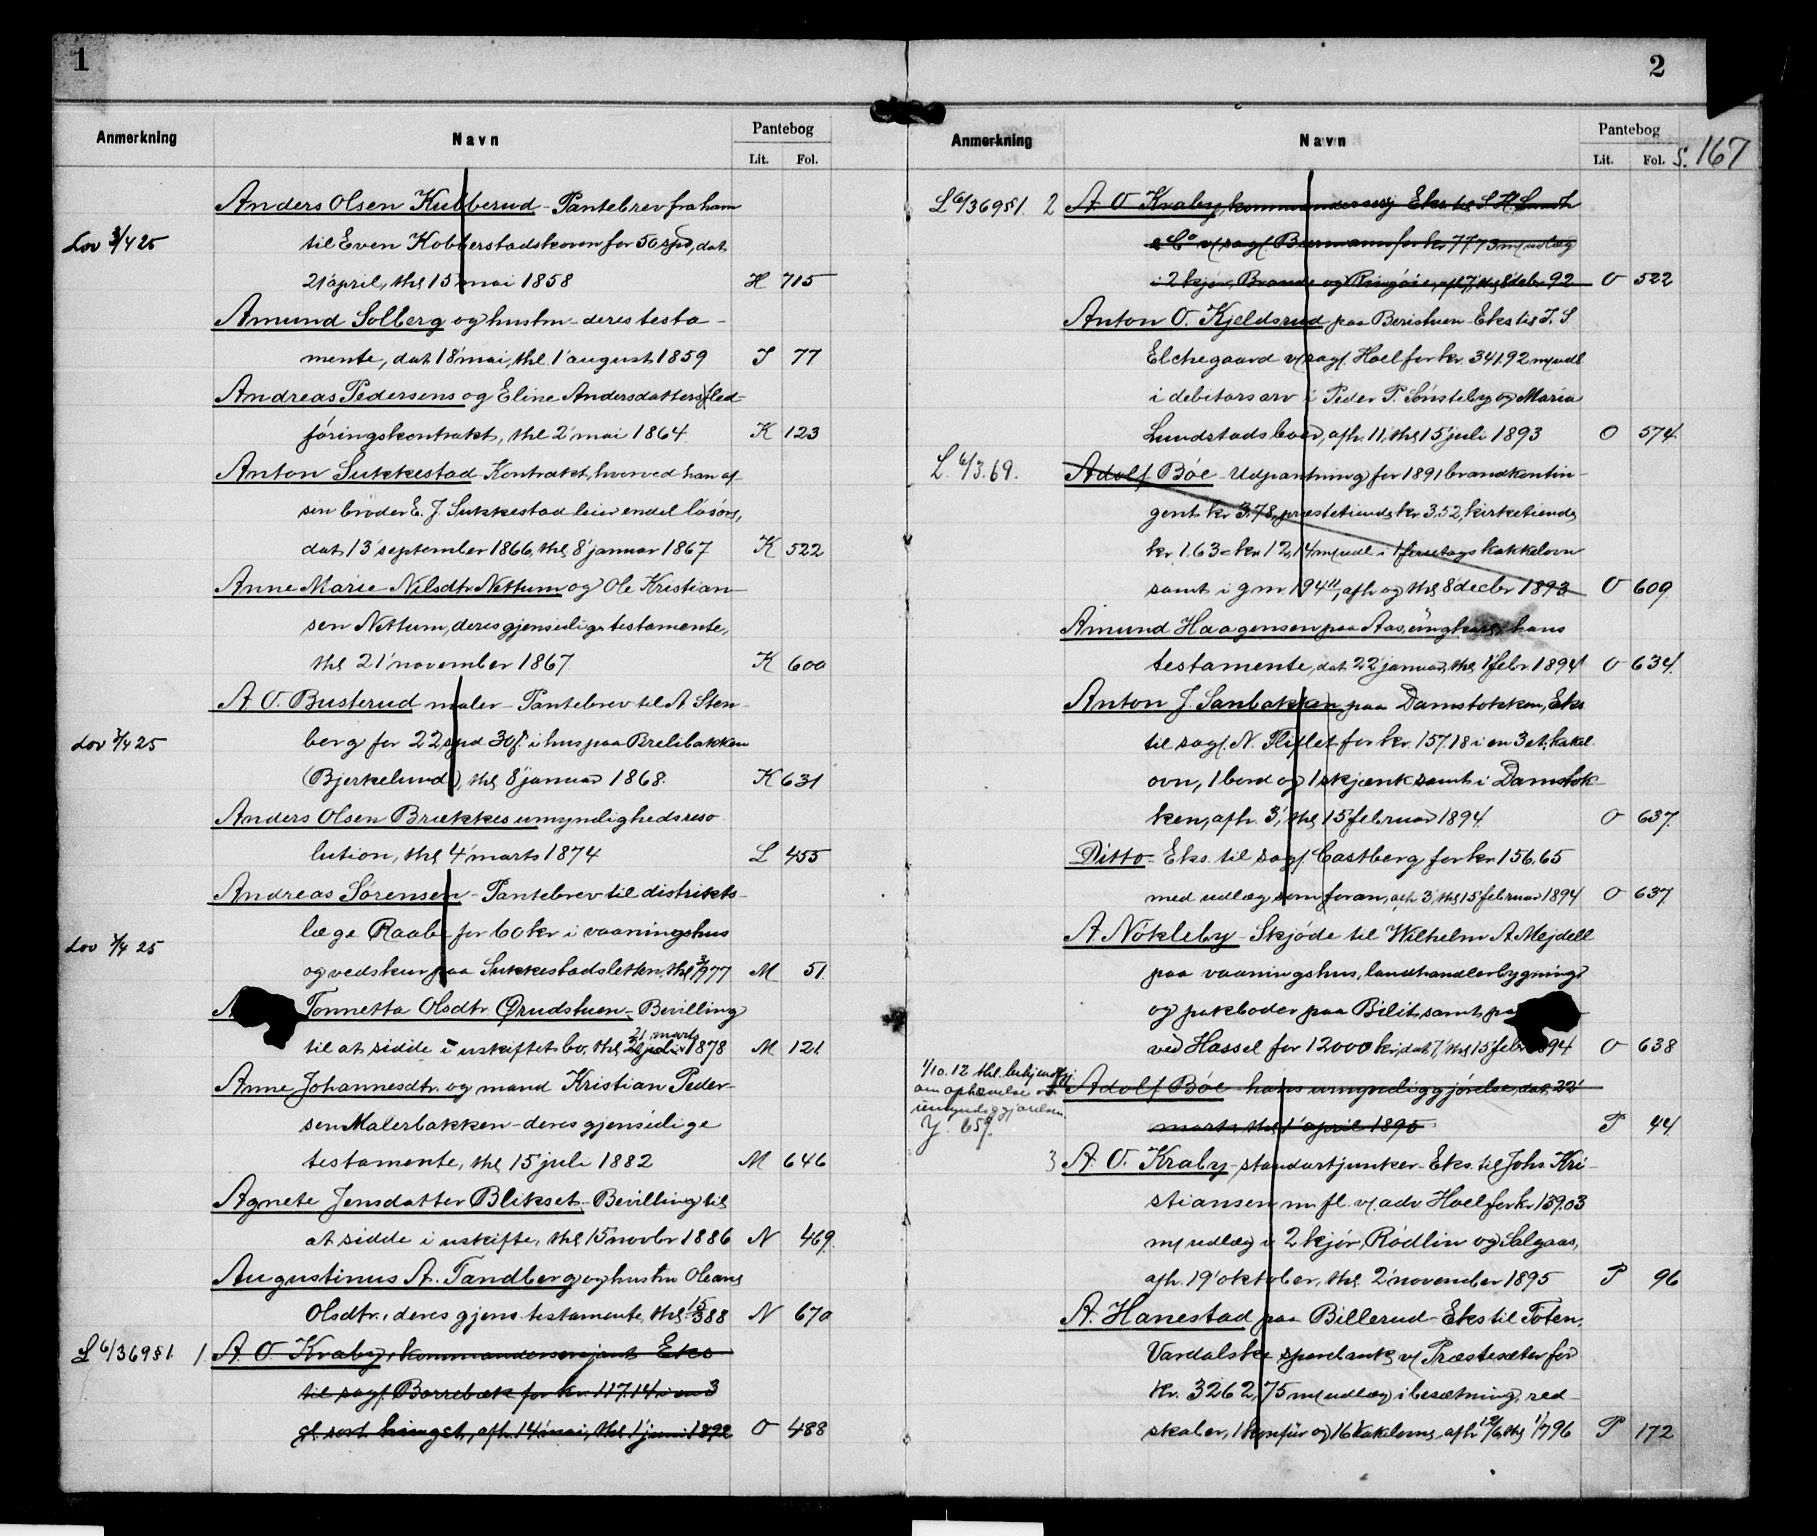 1
Anmerkning
Navn
Pantebog
Lit. Fol.
Anders Olsen Kubberud - Pantebrev fra ham
Lov 3/4 25
til Even Kobberstadskoven for 50 spd, dat
21 april, thl 15 mai 1858 H 715
Amund Solberg og hustru - deres testa-
mente, dat 18' mai, thl. 1' august 1859 I 77
Andreas Pedersens og Eline Andersdatters fled-
føringskontrakt, thl 2' mai 1864. K 123
Anton Sukkestad Kontrakt, hvorved han af
sin broder E. J. Sukkestad leier endel løsøre,
dat 13' september 1866, thl 8' januar 1867 K 522
Anne Marie Nilsdtr Nettum og Ole Kristian-
sen Nettum, deres gjensidige testamente,
thl 21' november 1867. K 600
A O. Busterud maler - Pantebrev til A Sten-
Lov 3/4 25
berg for 22 spd 30 f. i hus paa Brelibakken
(Bjerkelund), thl 8' januar 1868. K 631
Anders Olsen Brækkes umyndighedsreso
lution, thl 4' marts 1874 L 455
Andreas Sørensen - Pantebrev til distrikts-
Lov 3/4 25
læge Raabe for 60 kr i vaaningshus
og vedskur paa Sukkestadsletten, thl 3/9 77 M 51.
Tonnetta Olsdtr. Qrudstuen - Bevilling
21 marts
til at sidde i uskiftet bo, thl juli 1878 M 121.
Anne Johannesdtr. og mand Kristian Peder-
sen Malerbakken - deres gjensidige
testamente, thl 15 juli 1882 M 646
Agnete Jensdatter Blikset - Bevilling til
at sidde i uskifte, thl 15 novbr 1886 N 469.
Augustinus A. Tandberg og hustru Oleane
Olsdtr., deres gjens. testamente, thl 15/3 88 N 670
L 6/3 69 § 1. 1 A. O. Kraby, kommandersersjant Eks
til sagf. Borrebæk for kr. 117.14 i en 3
gl. sort hingst, afh. 14' mai, thl. 1' juni 1892 O 488
2
Anmerkning
Navn
Pantebog
Lit. Fol.
S. 167
L 6/3 69 § 1. 2 A. O. Kraby, kommandersersj Eks til S H Lund
& Co v/sagf. Burmann for kr 77.73 m/udlæg
i 2 kjør, Brande og Ringøie, afh 7', thl 8' febr 92 O 522
Anton O. Kjeldsrud paa Beristuen - Eks til J. S
Elchegaard v/sagf. Hoel for kr. 341.92 m/udl
i debitors arv i Peder P. Sønsteby og Maria
Lundstads boer, afh. 11', thl 15' juli 1893 O 574.
L. 6/3. 69. Adolf Bøe - Udpantning for 1891 brandkontin-
gent kr 3.78, præstetiende kr 3.52, kirketiende
kr. 1.63 = kr 12.14 m/udl i 1 fleretags kakkelovn
samt i g nr. 194 11, afh og thl 8 decbr 1893 O 609.
Amund Haagensen paa Aas, ungkarl, hans
testamente, dat 22' januar, thl 1' febr 1894 O 634.
Anton J. Sanbakken paa Damstokken, Eks
til sagf. N. Fliflet for kr. 157.18 i en 3 et. kakel
ovn, 1 bord og 1 skjænk samt i Damstok-
ken, afh. 3', thl 15' februar 1894. O 637.
Ditto - Eks. til sagf. Castberg for kr. 156.65
med udlæg som foran, afh 3', thl 15' februar 1894 O 637
A Nøkleby - Skjøde til Wilhelm A Mejdell
paa vaaningshus, landhandlerbygning
og pakboder paa Bilit samt
ved Hassel for 12000 kr, dat 7', thl 15' febr 1894 O 638
1/10. 12 thl. bekjendtgj
om ophævelse av
umyndiggjørelsen.
Y. 657.
Adolf Bøe - hans umyndiggjørelse, dat. 22'
marts, thl 1' april 1895 P 44.
3 A. O. Kraby - standartjunker - Eks. til Johs Kri-
stiansen m. fl. v/adv Hoel for kr 139.03
m/udlæg i 2 kjør, Rødlin og Salgaas,
afh. 19' oktober, thl. 2' november 1895 P 96
A. Hanestad paa Billerud - Eks til Toten,
Vardalske sparebank v/Præstesæter for
kr. 3262,75 m/udlæg i besætning, red-
skaber, 1 komfur og 16 kakelovne, afh 19/6, thl 1/7 96 P 172